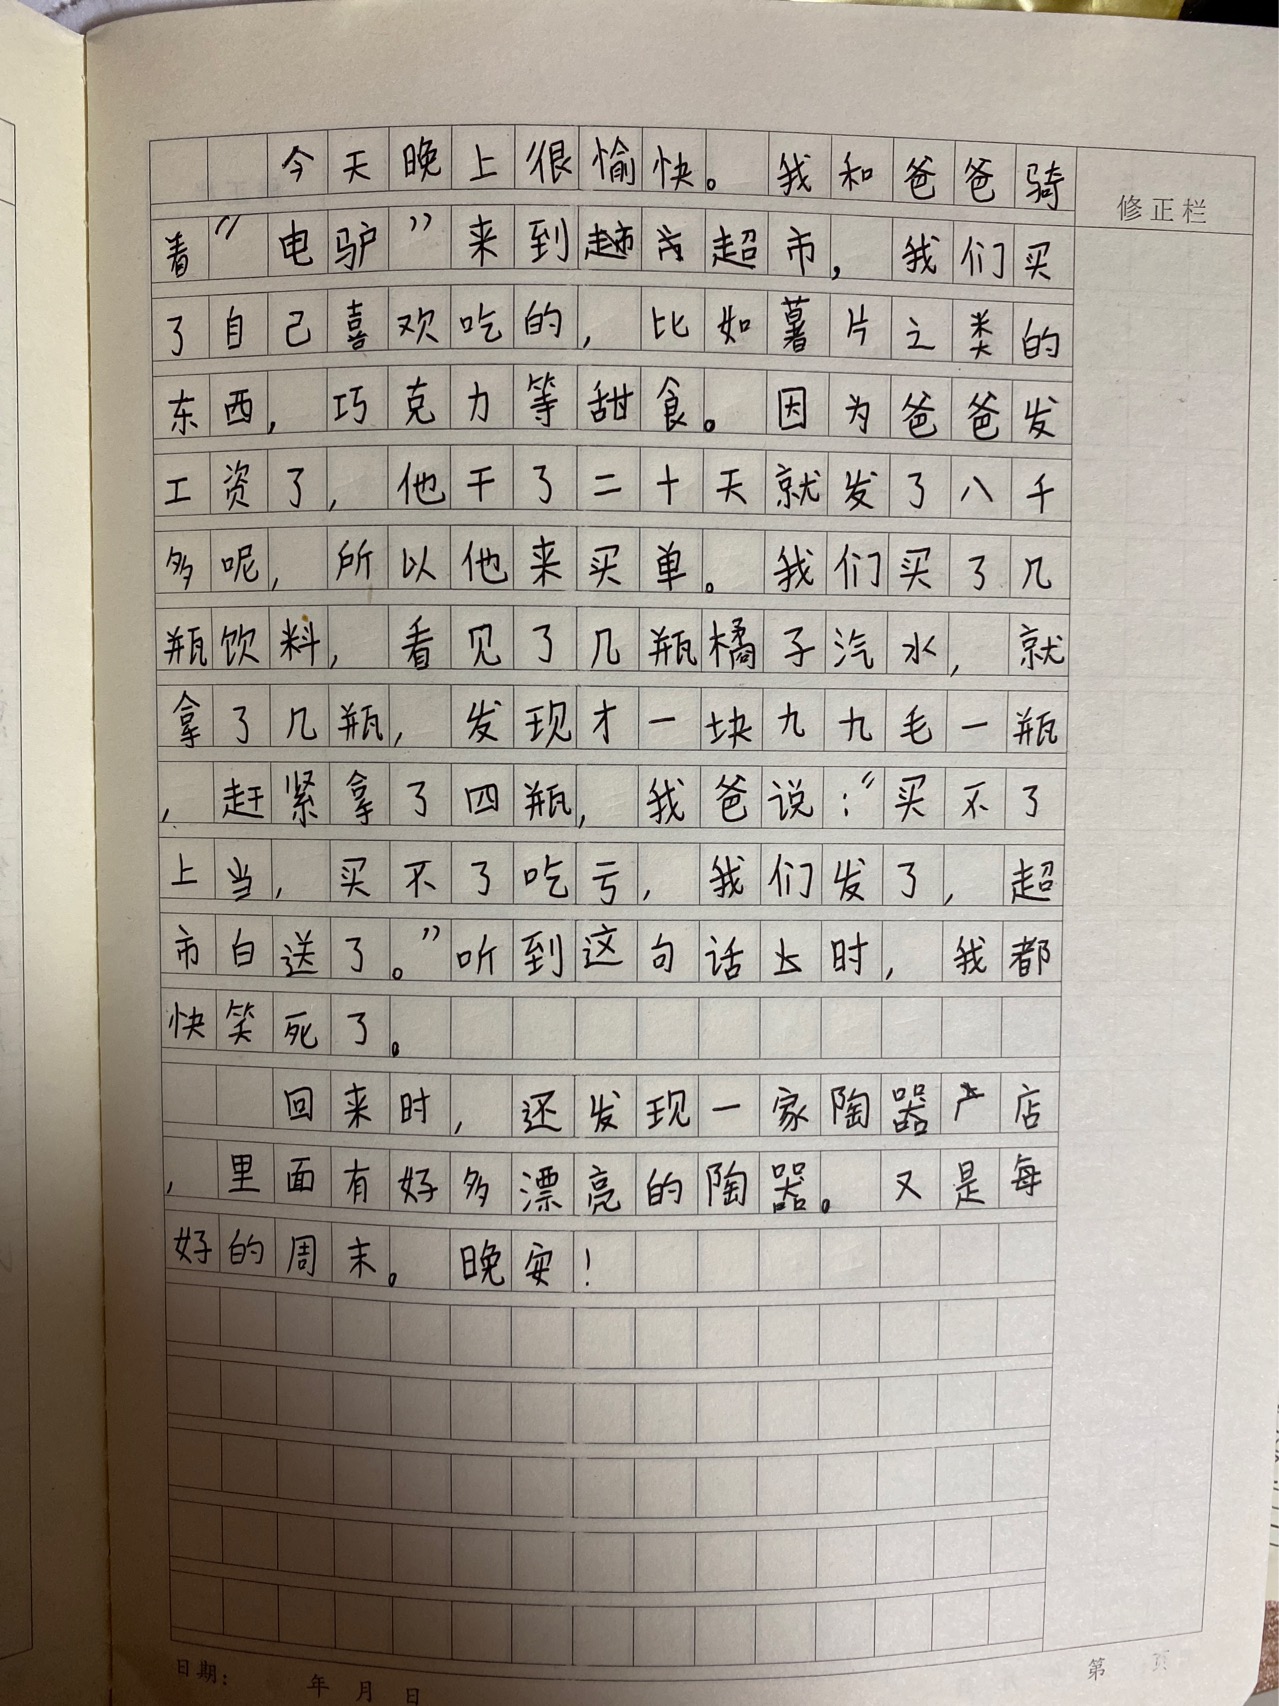 今天晚上很愉快。我和爸爸骑
修正栏
着“电驴”来到超市,我们买
了自己喜欢吃的,比如薯片之类的
东西,巧克力等甜食。因为爸爸发
工资了,他干了二十天就发了八千
多呢,所以他来买单。我们买了几
瓶饮料,看见了几瓶橘子汽水,就
拿了几瓶,发现才一块九九毛一瓶
,赶紧拿了四瓶,我爸说:“买不了
上当,买不了吃亏,我们发了,超
市白送了。”听到这句话时,我都
快笑死了。
回来时,还发现一家陶器店
,里面有好多漂亮的陶器。又是每
好的周末。晚安!
日期: 年 月 日
第 页